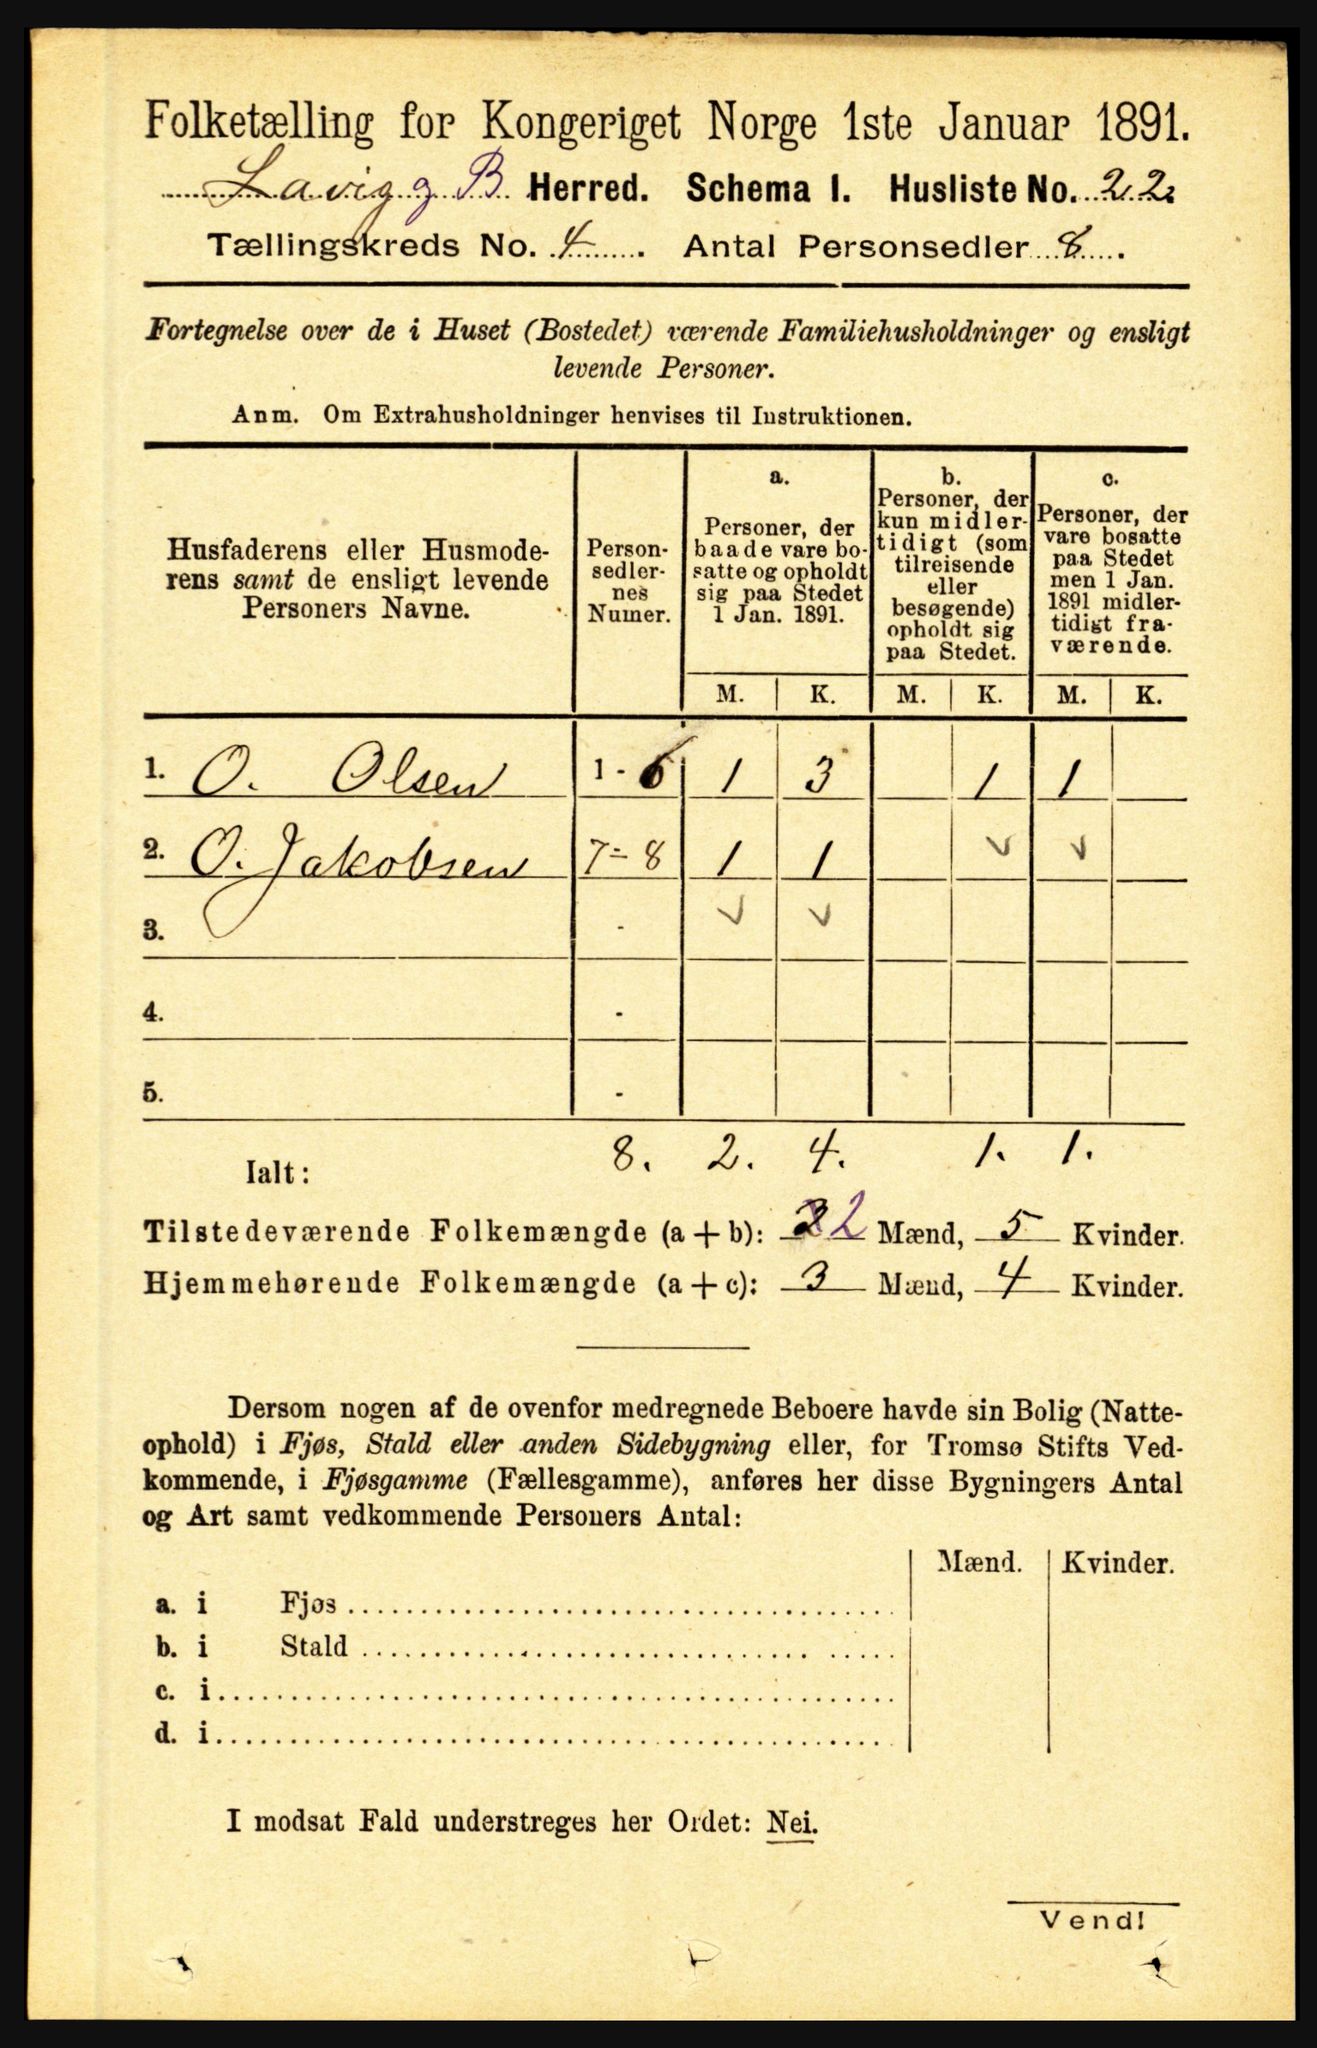 Folketælling for Kongeriget Norge 1ste Januar 1891.
Lavig og B Herred. Schema I. Husliste No. 22.
Tællingskreds No. 4. Antal Personsedler 8.
Fortegnelse over de i Huset (Bostedet) værende Familiehusholdninger og ensligt
levende Personer.
Anm. Om Extrahusholdninger henvises til Instruktionen.
Husfaderens eller Husmode-
rens samt de ensligt levende
Personers Navne.
Person-
sedler-
nes
Numer.
a.
Personer, der
baade vare bo-
satte og opholdt
sig paa Stedet
1 Jan. 1891.
b.
Personer, der
kun midler-
tidigt (som
tilreisende
eller
besøgende)
opholdt sig
paa Stedet.
c.
Personer, der
vare bosatte
paa Stedet
men 1 Jan.
1891 midler-
tidigt fra-
værende.
M. K. M. K. M. K.
1. O. Olsen 1 - 6 1 3 1 1
2. O. Jakobsen 7 - 8 1 1
3. -
4. -
5. -
Ialt: 8. 2. 4. 1. 1.
Tilstedeværende Folkemængde (a + b): 2 Mænd, 5 Kvinder.
Hjemmehørende Folkemængde (a + c): 3 Mænd, 4 Kvinder.
Dersom nogen af de ovenfor medregnede Beboere havde sin Bolig (Natte-
ophold) i Fjøs, Stald eller anden Sidebygning eller, for Tromsø Stifts Ved-
kommende, i Fjøsgamme (Fællesgamme), anføres her disse Bygningers Antal
og Art samt vedkommende Personers Antal:
Mænd. Kvinder.
a. i Fjøs
b. i Stald
c. i
d. i
I modsat Fald understreges her Ordet: Nei.
Vend!